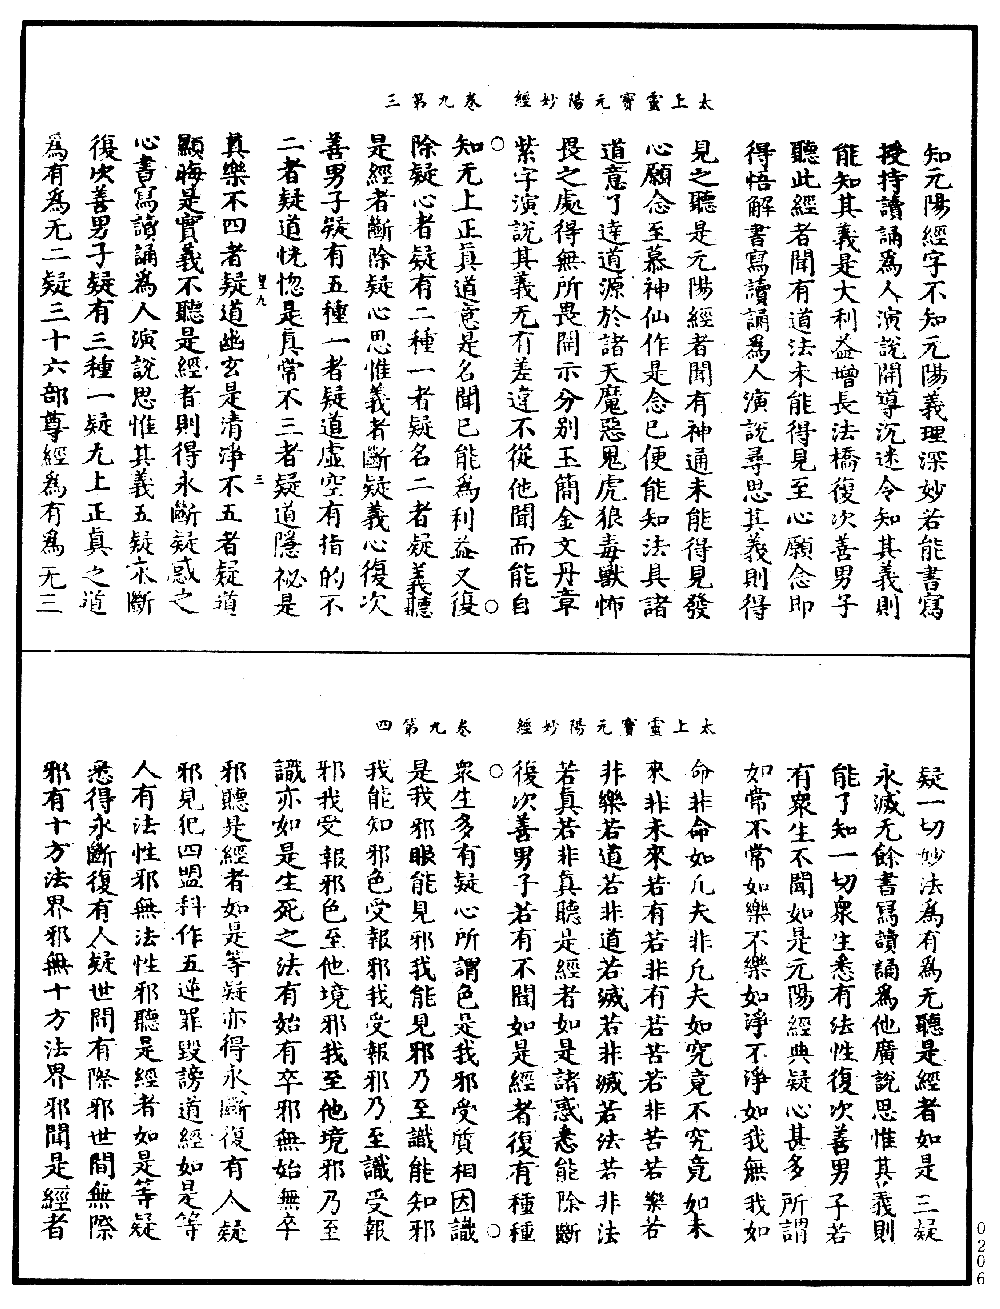 太上靈寶元陽妙經　卷九第三
知元陽經字不知元陽義理深妙若能書寫
授持讀誦為人演說開導沉迷令知其義則
能知其義是大利益增長法橋復次善男子
聽此經者聞有道法未能得見至心願念即
得悟解書寫讀誦為人演說尋思其義則得
見之聽是元陽經者聞有神通未能得見發
心願念至慕神仙作是念已便能知法具諸
道意了達道源於諸天魔惡鬼虎狼毒獸怖
畏之處得無所畏開示分別玉簡金文丹章
紫字演說其義无有差違不從他聞而能自
知无上正真道意是名聞已能為利益又復
除疑心者疑有二種一者疑名二者疑義聽
是經者斷除疑心思惟義者斷疑義心復次
善男子疑有五種一者疑道虛空有指的不
二者疑道恍惚是真常不三者疑道隱祕是
聖九　三
真樂不四者疑道幽玄是清淨不五者疑道
顯晦是實義不聽是經者則得永斷疑惑之
心書寫讀誦為人演說思惟其義五疑永斷
復次善男子疑有三種一疑无上正真之道
為有為无二疑三十六部尊經為有為无三
太上靈寶元陽妙經　卷九第四
疑一切妙法為有為无聽是經者如是三疑
永滅无餘書寫讀誦為他廣說思惟其義則
能了知一切眾生悉有法性復次善男子若
有眾生不聞如是元陽經典疑心甚多所謂
如常不常如樂不樂如淨不淨如我無我如
命非命如凡夫非凡夫如究竟不究竟如未
來非未來若有若非有若苦若非苦若樂若
非樂若道若非道若滅若非滅若法若非法
若真若非真聽是經者如是諸惑悉能除斷
復次善男子若有不聞如是經者復有種種
眾生多有疑心所謂色是我邪受質相因識
是我邪眼能見邪我能見邪乃至識能知邪
我能知邪色受報邪我受報邪乃至識受報
邪我受報邪色至他境邪我至他境邪乃至
識亦如是生死之法有始有卒邪無始無卒
邪聽是經者如是等疑亦得永斷復有人疑
邪見犯四盟科作五逆罪毀謗道經如是等
人有法性邪無法性邪聽是經者如是等疑
悉得永斷復有人疑世間有際邪世間無際
邪有十方法界邪無十方法界邪聞是經者
0206